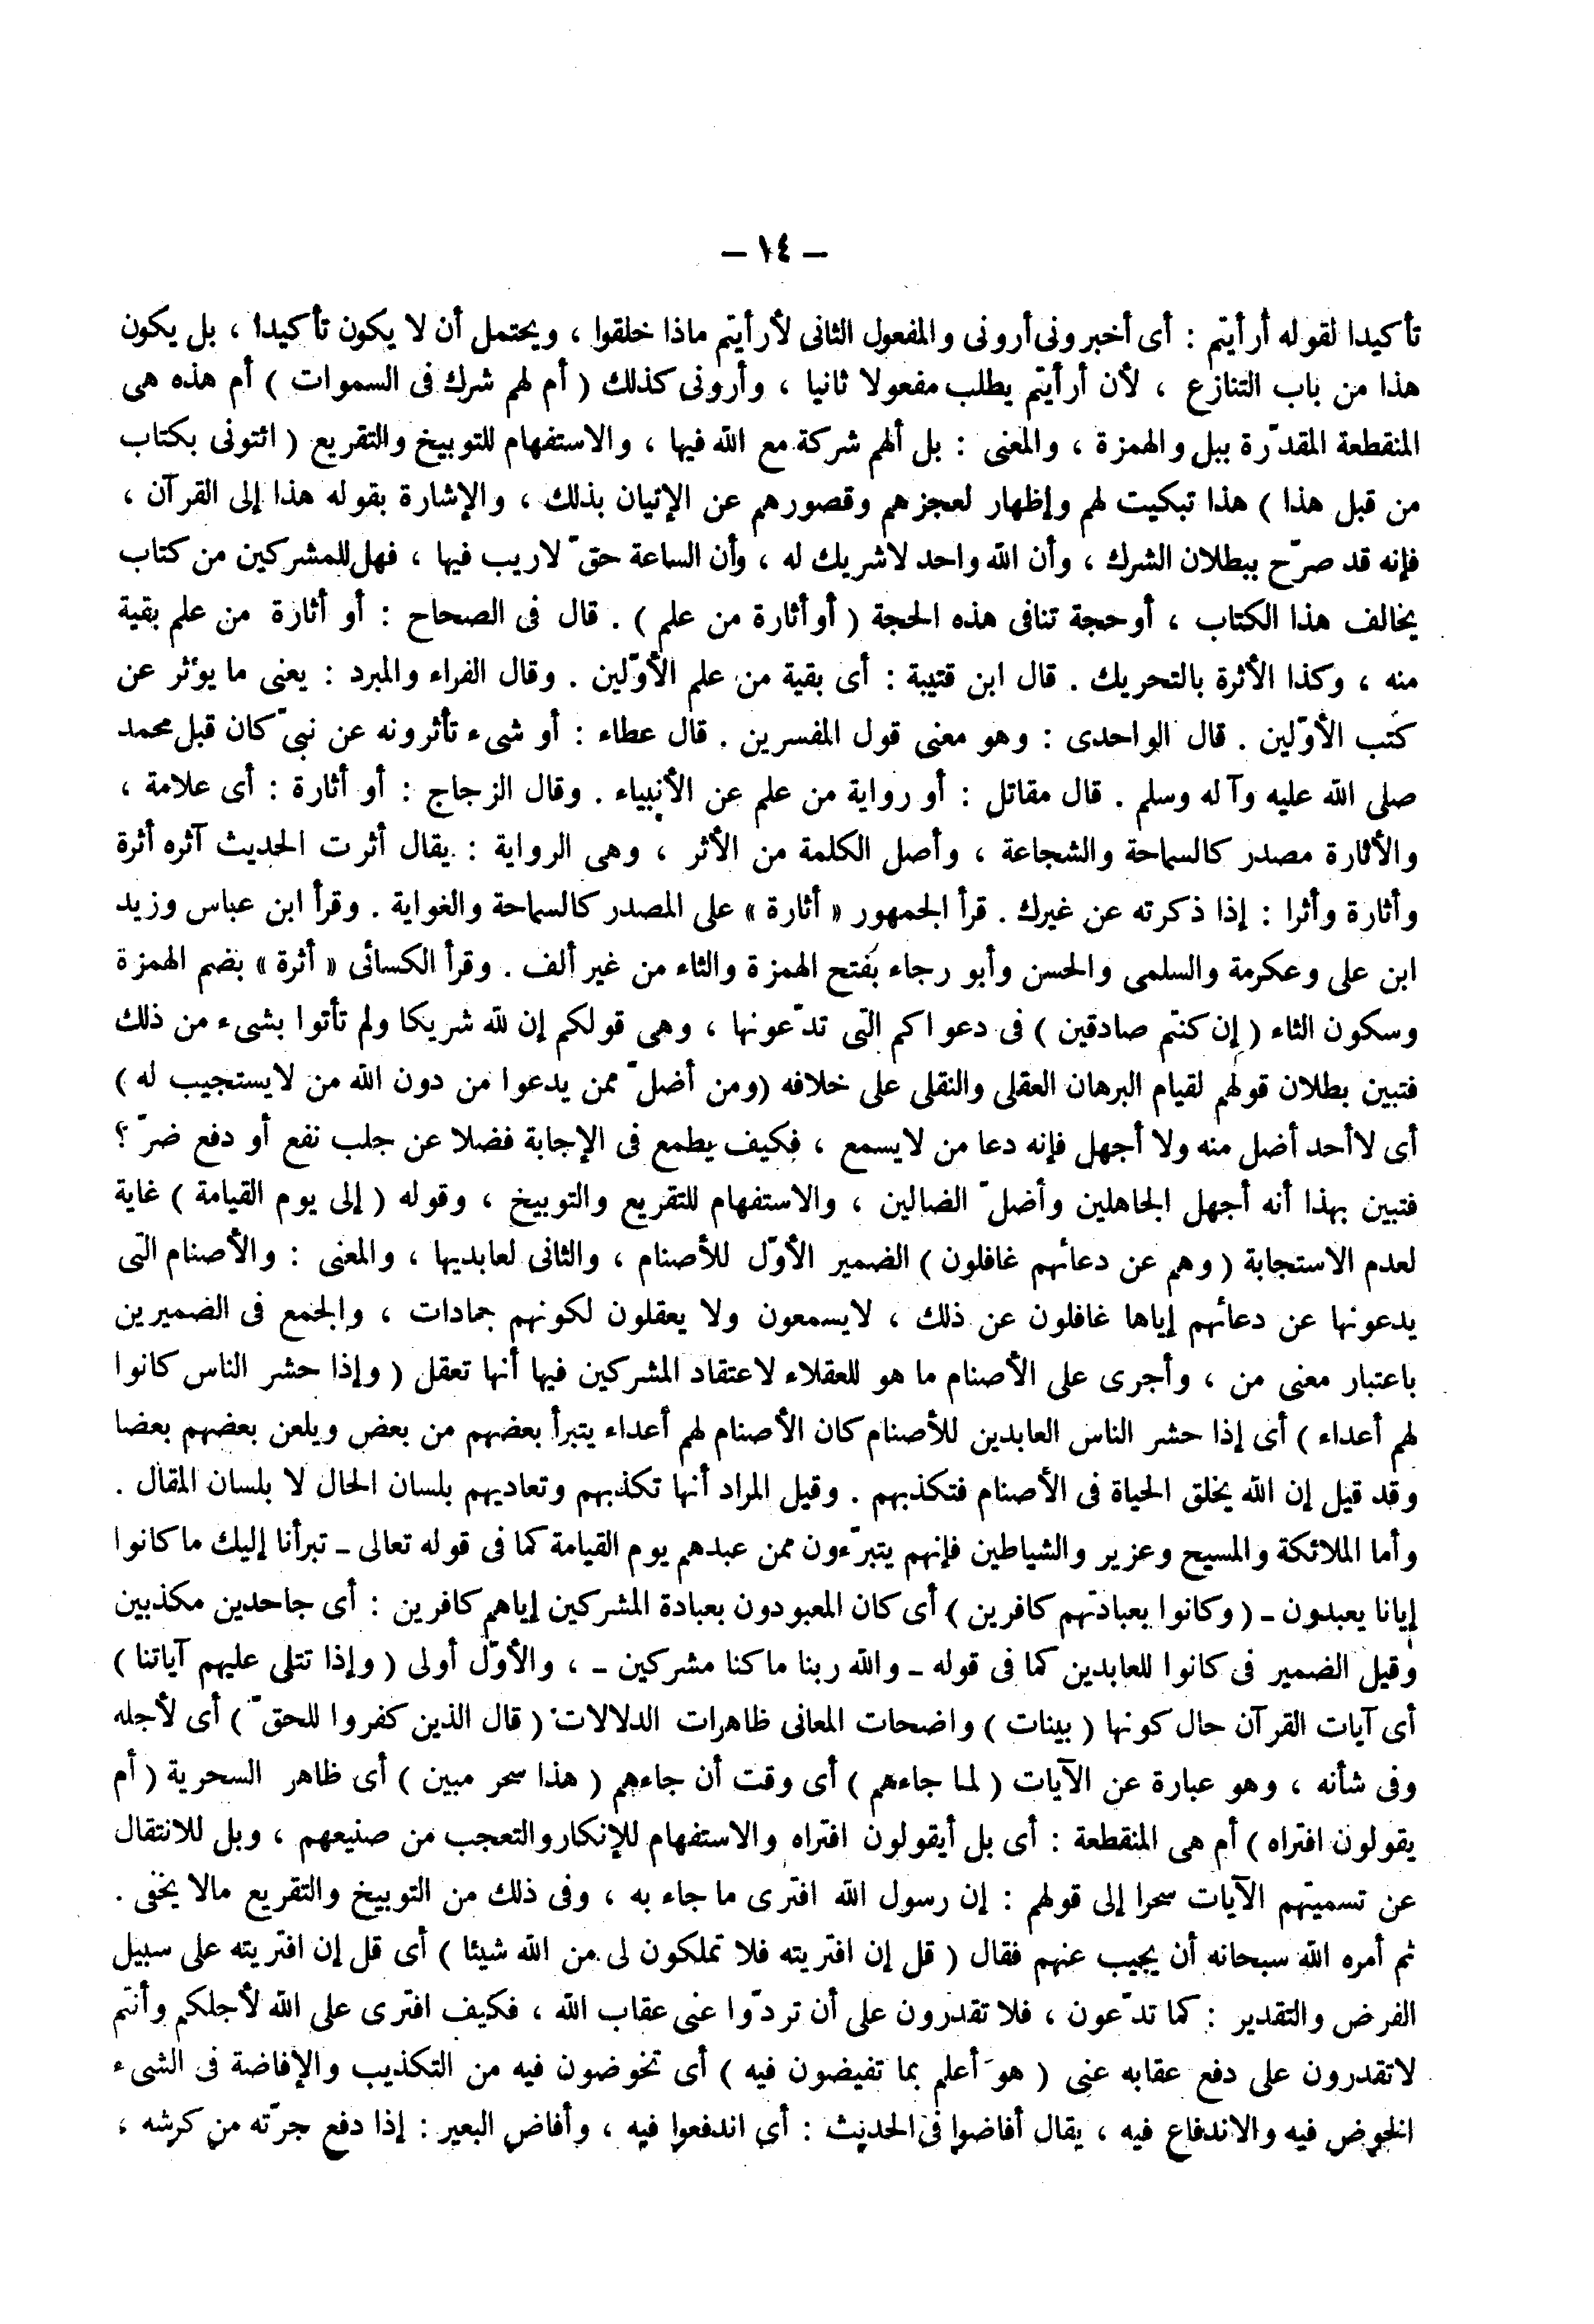 – ١٤ –
تأكيدا لقوله أرأيتم : أى أخبرونى أرونى والمفعول الثانى لأرأيتم ماذا خلقوا ، ويحتمل أن لا يكون تأكيدا ، بل يكون
هذا من باب التنازع ، لأن أرأيتم يطلب مفعولا ثانيا ، وأرونى كذلك ( أم لهم شرك فى السموات ) أم هذه هى
المنقطعة المقدّرة ببل والهمزة ، والمعنى : بل ألهم شركة مع الله فيها ، والاستفهام للتوبيخ والتقريع ( ائتونى بكتاب
من قبل هذا ) هذا تبكيت لهم وإظهار لعجزهم وقصورهم عن الإتيان بذلك ، والإشارة بقوله هذا إلى القرآن ،
فإنه قد صرّح ببطلان الشرك ، وأن الله واحد لاشريك له ، وأن الساعة حقّ لاريب فيها ، فهل للمشركين من كتاب
يخالف هذا الكتاب ، أو حجة تنافى هذه الحجة ( أو أثارة من علم ) . قال فى الصحاح : أو أثارة من علم بقية
منه ، وكذا الأثرة بالتحريك . قال ابن قتيبة : أى بقية من علم الأوّلين . وقال الفراء والمبرد : يعنى ما يؤثر عن
كتب الأوّلين . قال الواحدى : وهو معنى قول المفسرين . قال عطاء : أو شىء تأثرونه عن نبىّ كان قبل محمد
صلى الله عليه وآله وسلم . قال مقاتل : أو رواية من علم عن الأنبياء . وقال الزجاج : أو أثارة : أى علامة ،
والأثارة مصدر كالسماحة والشجاعة ، وأصل الكلمة من الأثر ، وهى الرواية : يقال أثرت الحديث آثره أثرة
وأثارة وأثرا : إذا ذكرته عن غيرك . قرأ الجمهور « أثارة » على المصدر كالسماحة والغواية . وقرأ ابن عباس وزيد
ابن على وعكرمة والسلمى والحسن وأبو رجاء بفتح الهمزة والثاء من غير ألف . وقرأ الكسائى « أثرة » بضم الهمزة
وسكون الثاء ( إن كنتم صادقين ) فى دعواكم التى تدّعونها ، وهى قولكم إن لله شريكا ولم تأتوا بشىء من ذلك
فتبين بطلان قولهم لقيام البرهان العقلى والنقلى على خلافه ( ومن أضلّ ممن يدعوا من دون الله من لايستجيب له )
أى لاأحد أضل منه ولا أجهل فإنه دعا من لايسمع ، فكيف يطمع فى الإجابة فضلا عن جلب نفع أو دفع ضرّ ؟
فتبين بهذا أنه أجهل الجاهلين وأضلّ الضالين ، والاستفهام للتقريع والتوبيخ ، وقوله ( إلى يوم القيامة ) غاية
لعدم الاستجابة ( وهم عن دعائهم غافلون ) الضمير الأوّل للأصنام ، والثانى لعابديها ، والمعنى : والأصنام التى
يدعونها عن دعائهم إياها غافلون عن ذلك ، لايسمعون ولا يعقلون لكونهم جمادات ، والجمع فى الضميرين
باعتبار معنى من ، وأجرى على الأصنام ما هو للعقلاء لاعتقاد المشركين فيها أنها تعقل ( وإذا حشر الناس كانوا
لهم أعداء ) أى إذا حشر الناس العابدين للأصنام كان الأصنام لهم أعداء يتبرأ بعضهم من بعض ويلعن بعضهم بعضا
وقد قيل إن الله يخلق الحياة فى الأصنام فتكذبهم . وقيل المراد أنها تكذبهم وتعاديهم بلسان الحال لا بلسان المقال .
وأما الملائكة والمسيح وعزير والشياطين فإنهم يتبرّءون ممن عبدهم يوم القيامة كما فى قوله تعالى – تبرأنا إليك ماكانوا
إيانا يعبدون – ( وكانوا بعبادتهم كافرين ) أى كان المعبودون بعبادة المشركين إياهم كافرين : أى جاحدين مكذبين
وقيل الضمير فى كانوا للعابدين كما فى قوله – والله ربنا ماكنا مشركين – ، والأوّل أولى ( وإذا تتلى عليهم آياتنا )
أى آيات القرآن حال كونها ( بينات ) واضحات المعانى ظاهرات الدلالات ( قال الذين كفروا للحقّ ) أى لأجله
وفى شأنه ، وهو عبارة عن الآيات ( لما جاءهم ) أى وقت أن جاءهم ( هذا سحر مبين ) أى ظاهر السحرية ( أم
يقولون افتراه ) أم هى المنقطعة : أى بل أيقولون افتراه والاستفهام للإنكار والتعجب من صنيعهم ، وبل للانتقال
عن تسميتهم الآيات سحرا إلى قولهم : إن رسول الله افترى ما جاء به ، وفى ذلك من التوبيخ والتقريع مالا يخفى .
ثم أمره الله سبحانه أن يجيب عنهم فقال ( قل إن افتريته فلا تملكون لى من الله شيئا ) أى قل إن افتريته على سبيل
الفرض والتقدير : كما تدّعون ، فلا تقدرون على أن تردّوا عنى عقاب الله ، فكيف افترى على الله لأجلكم وأنتم
لاتقدرون على دفع عقابه عنى ( هو أعلم بما تفيضون فيه ) أى تخوضون فيه من التكذيب والإفاضة فى الشىء
الخوض فيه والاندفاع فيه ، يقال أفاضوا فى الحديث : أى اندفعوا فيه ، وأفاض البعير : إذا دفع جرّته من كرشه ،